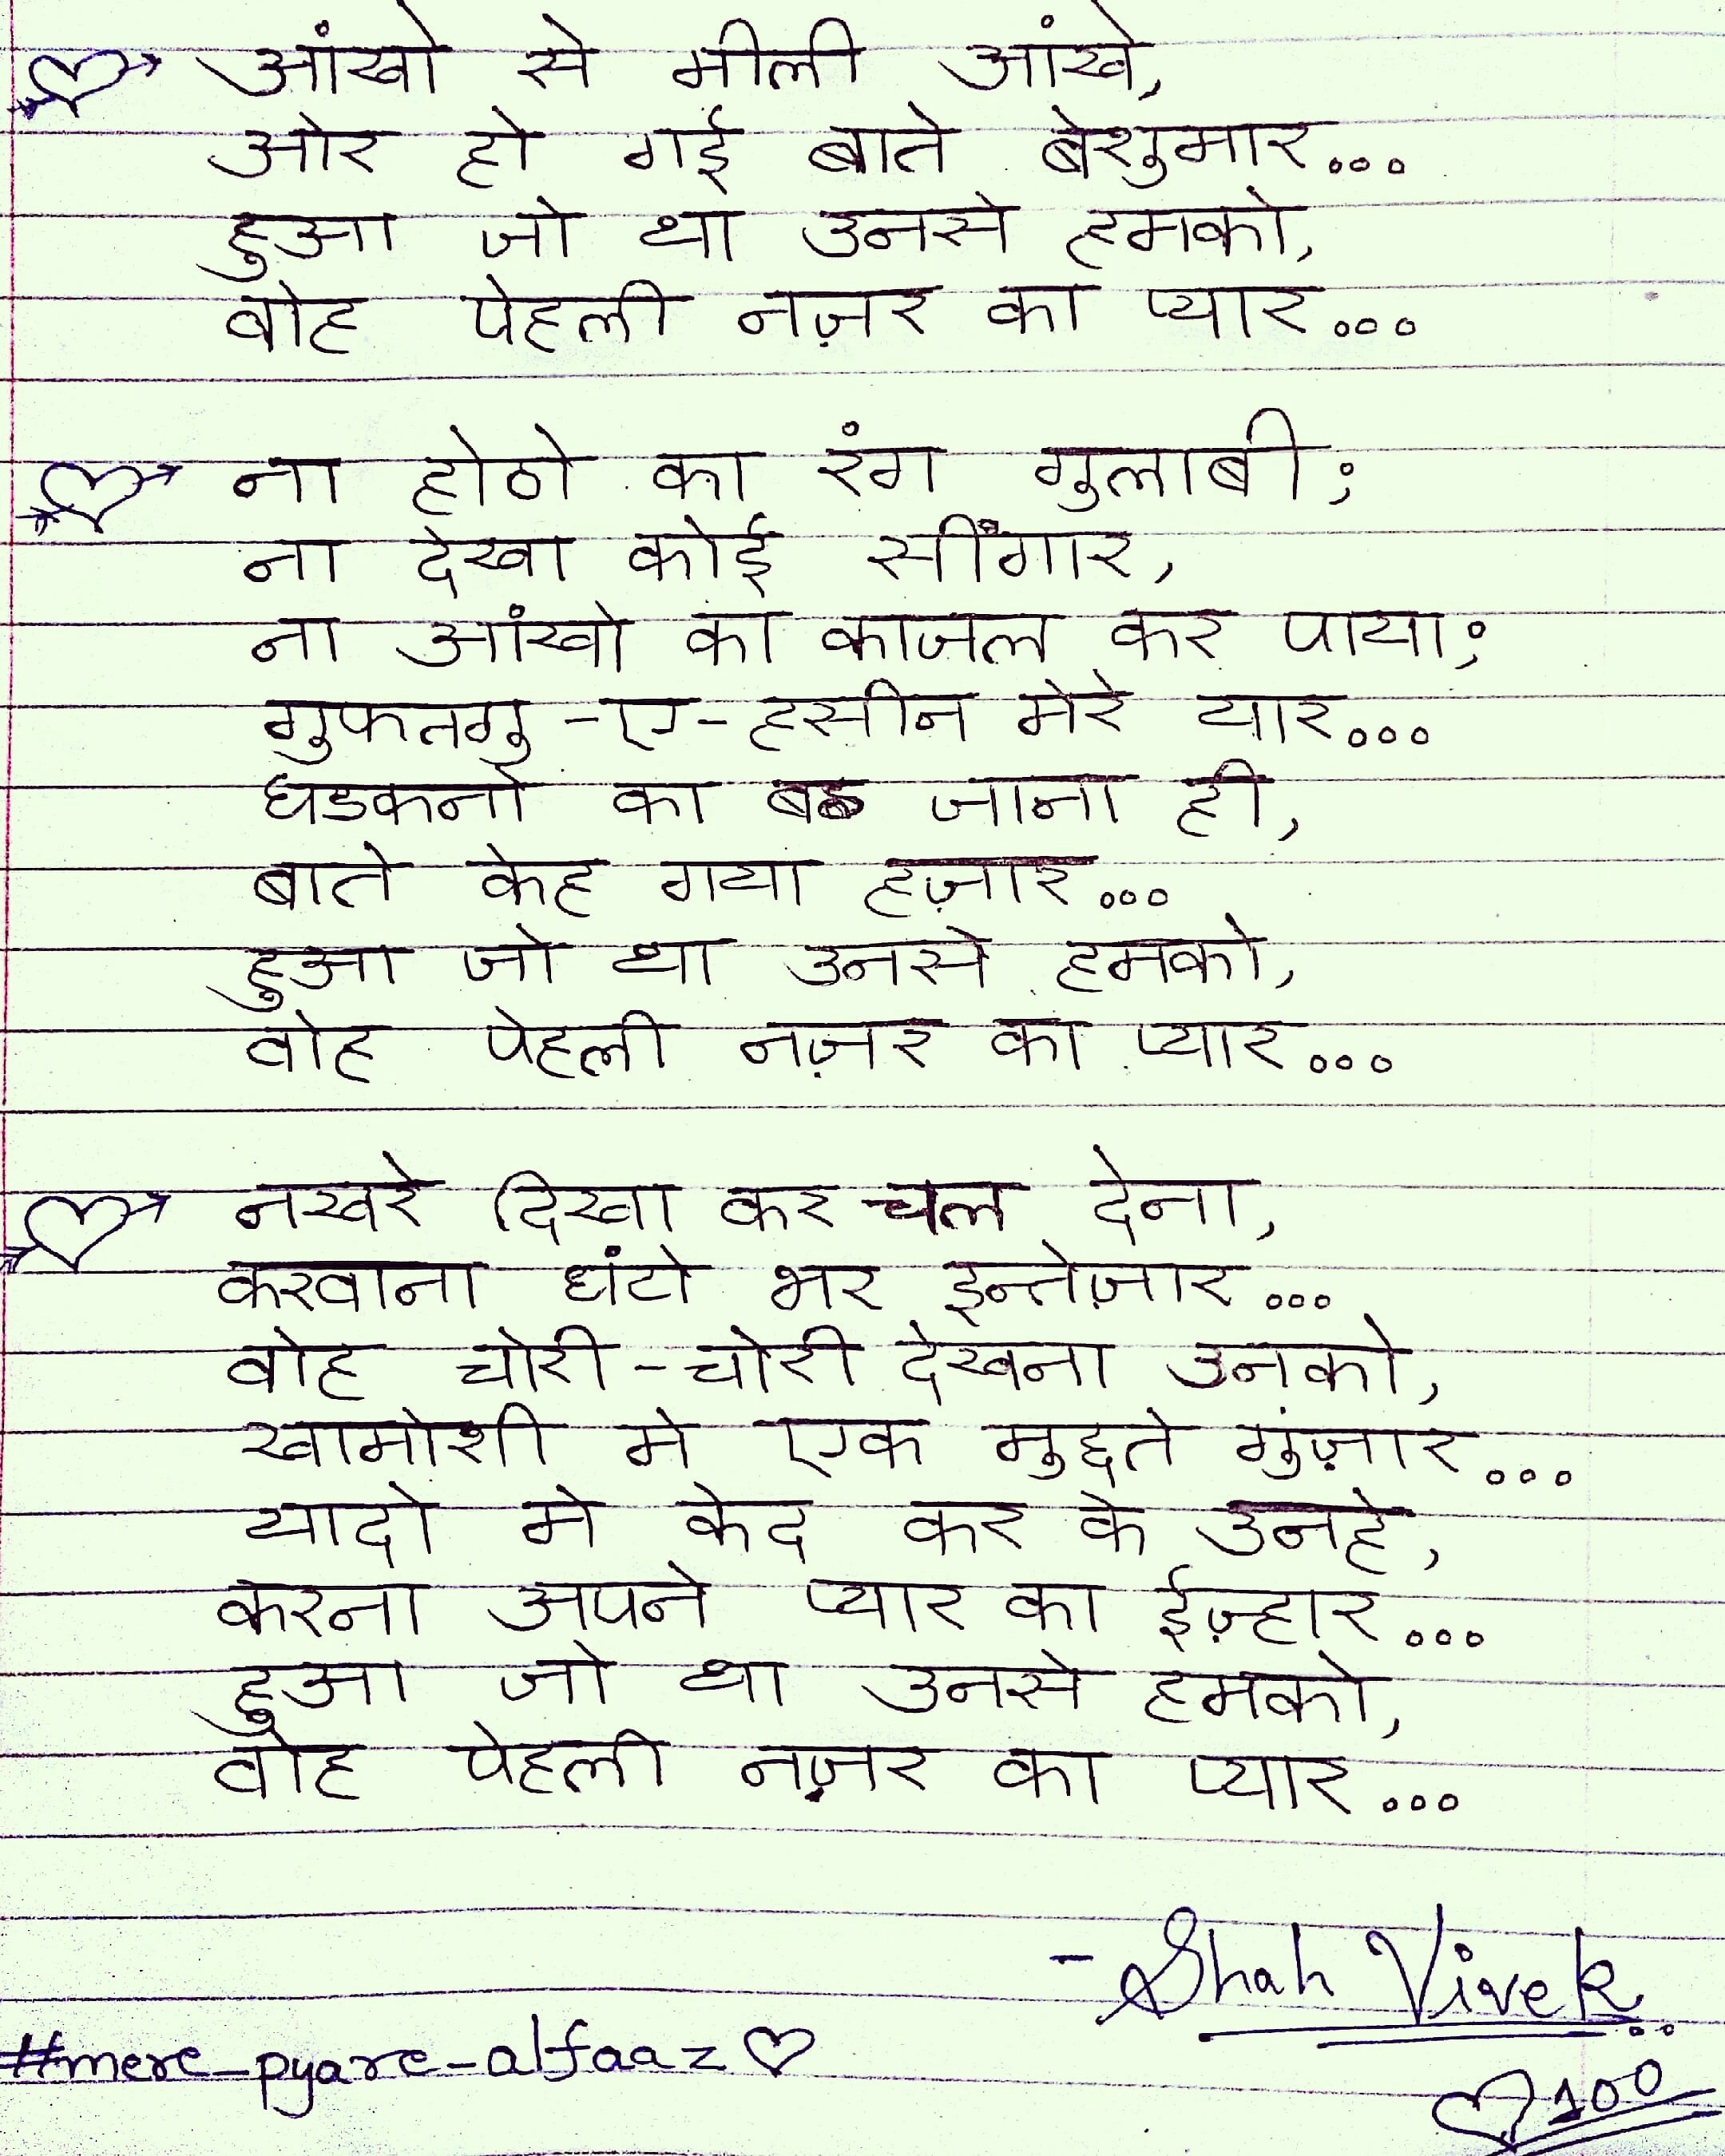 आंखो से मीली आंखे,
ओर हो गई बाते बेशुमार...
हुआ जो था उनसे हमको,
वोह पेहली नज़र का प्यार...
ना होठो का रंग गुलाबी;
ना देखा कोई सींगार,
ना आंखो का काजल कर पाया;
गुफतगु-ए-हसीन मेरे यार...
धडकनो का बढ जाना ही,
बाते केह गया हज़ार...
हुआ जो था उनसे हमको,
वोह पेहली नज़र का प्यार...
नखरे दिखा कर चल देना,
करवाना घंटो भर इन्तेज़ार...
वोह चोरी-चोरी देखना उनको,
खामोशी मे एक मुद्दते गुंज़ार...
यादो मे केद कर के उनहे,
करना अपने प्यार का ईज़्हार...
हुआ जो था उनसे हमको,
वोह पेहली नज़र का प्यार...
- Shah Vivek
#mere_pyare_alfaaz♡
♡100